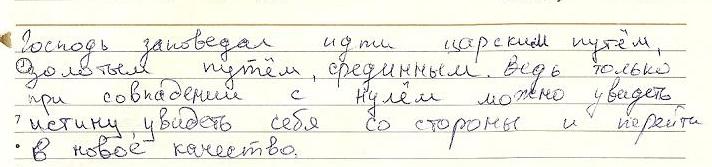 Господь заповедал идти царским путём,
золотым путём, срединным. Ведь только
при совпадении с нулём можно увидеть
истину, увидеть себя со стороны и перейти
в новое качество.